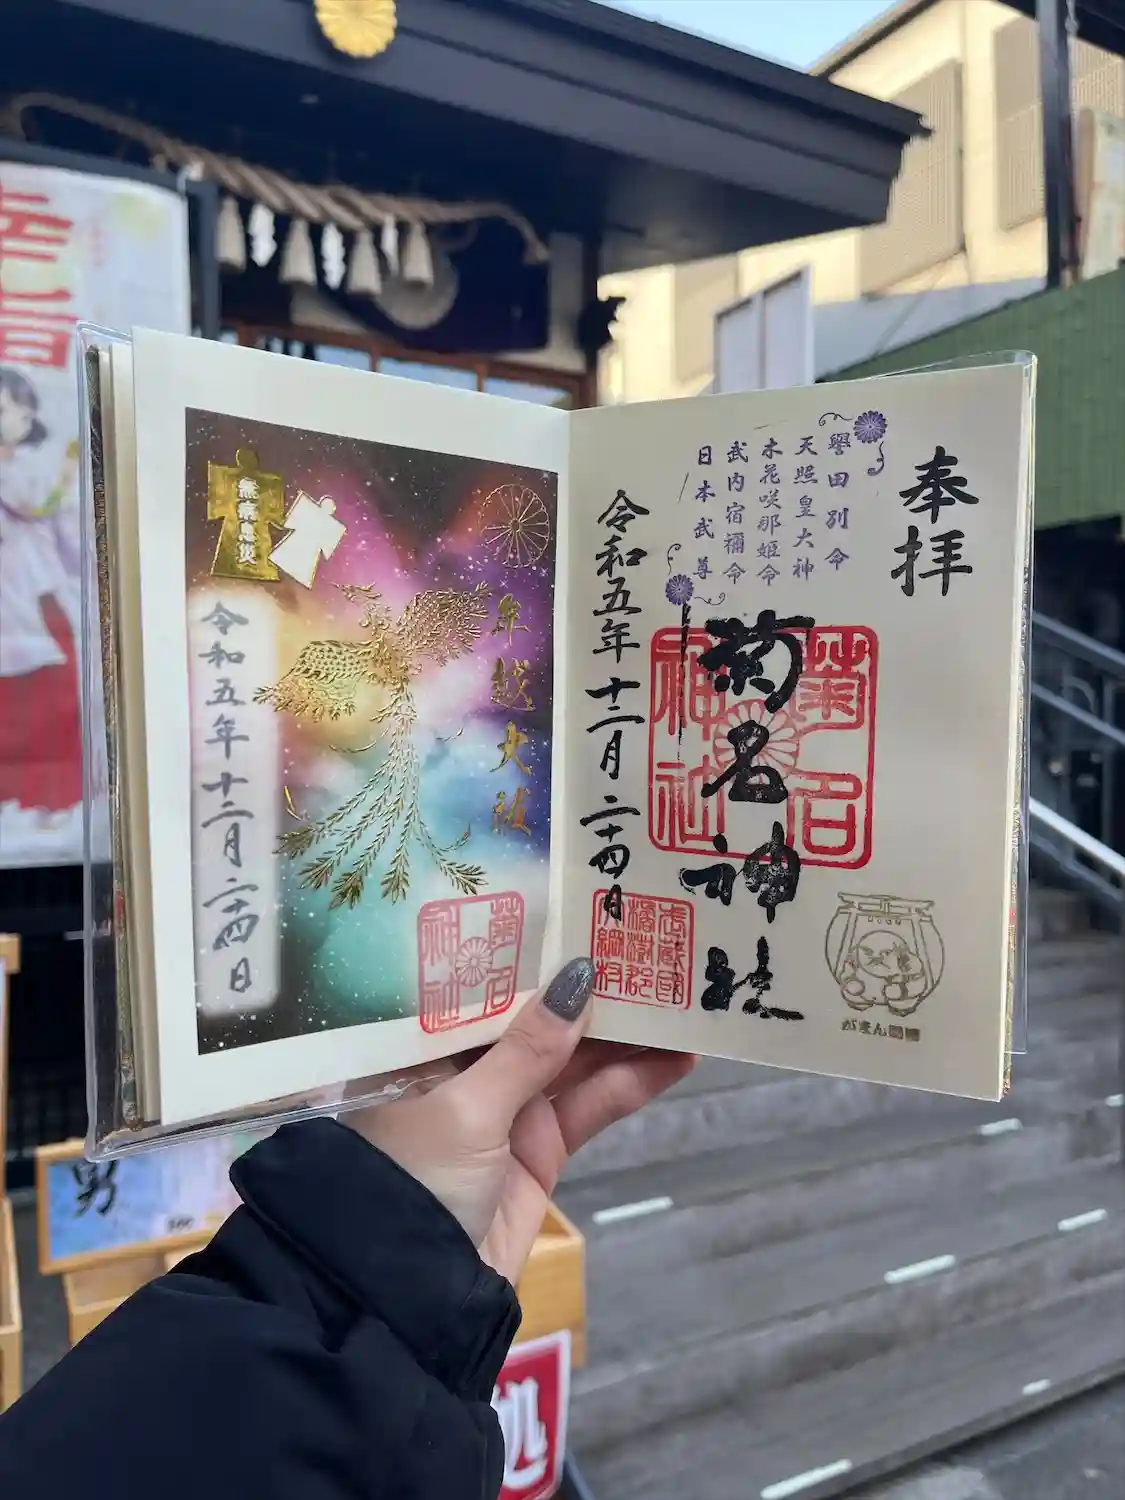 奉拝
譽田別命
天照皇大神
木花咲耶姫命
武内宿禰命
日本武尊
菊名神社
菊名
神社
令和五年十二月二十四日
武蔵國
橘樹郡
大綱村
がまんさま
無病息災
年越大祓
令和五年十二月二十四日
菊名
神社
幸福
処